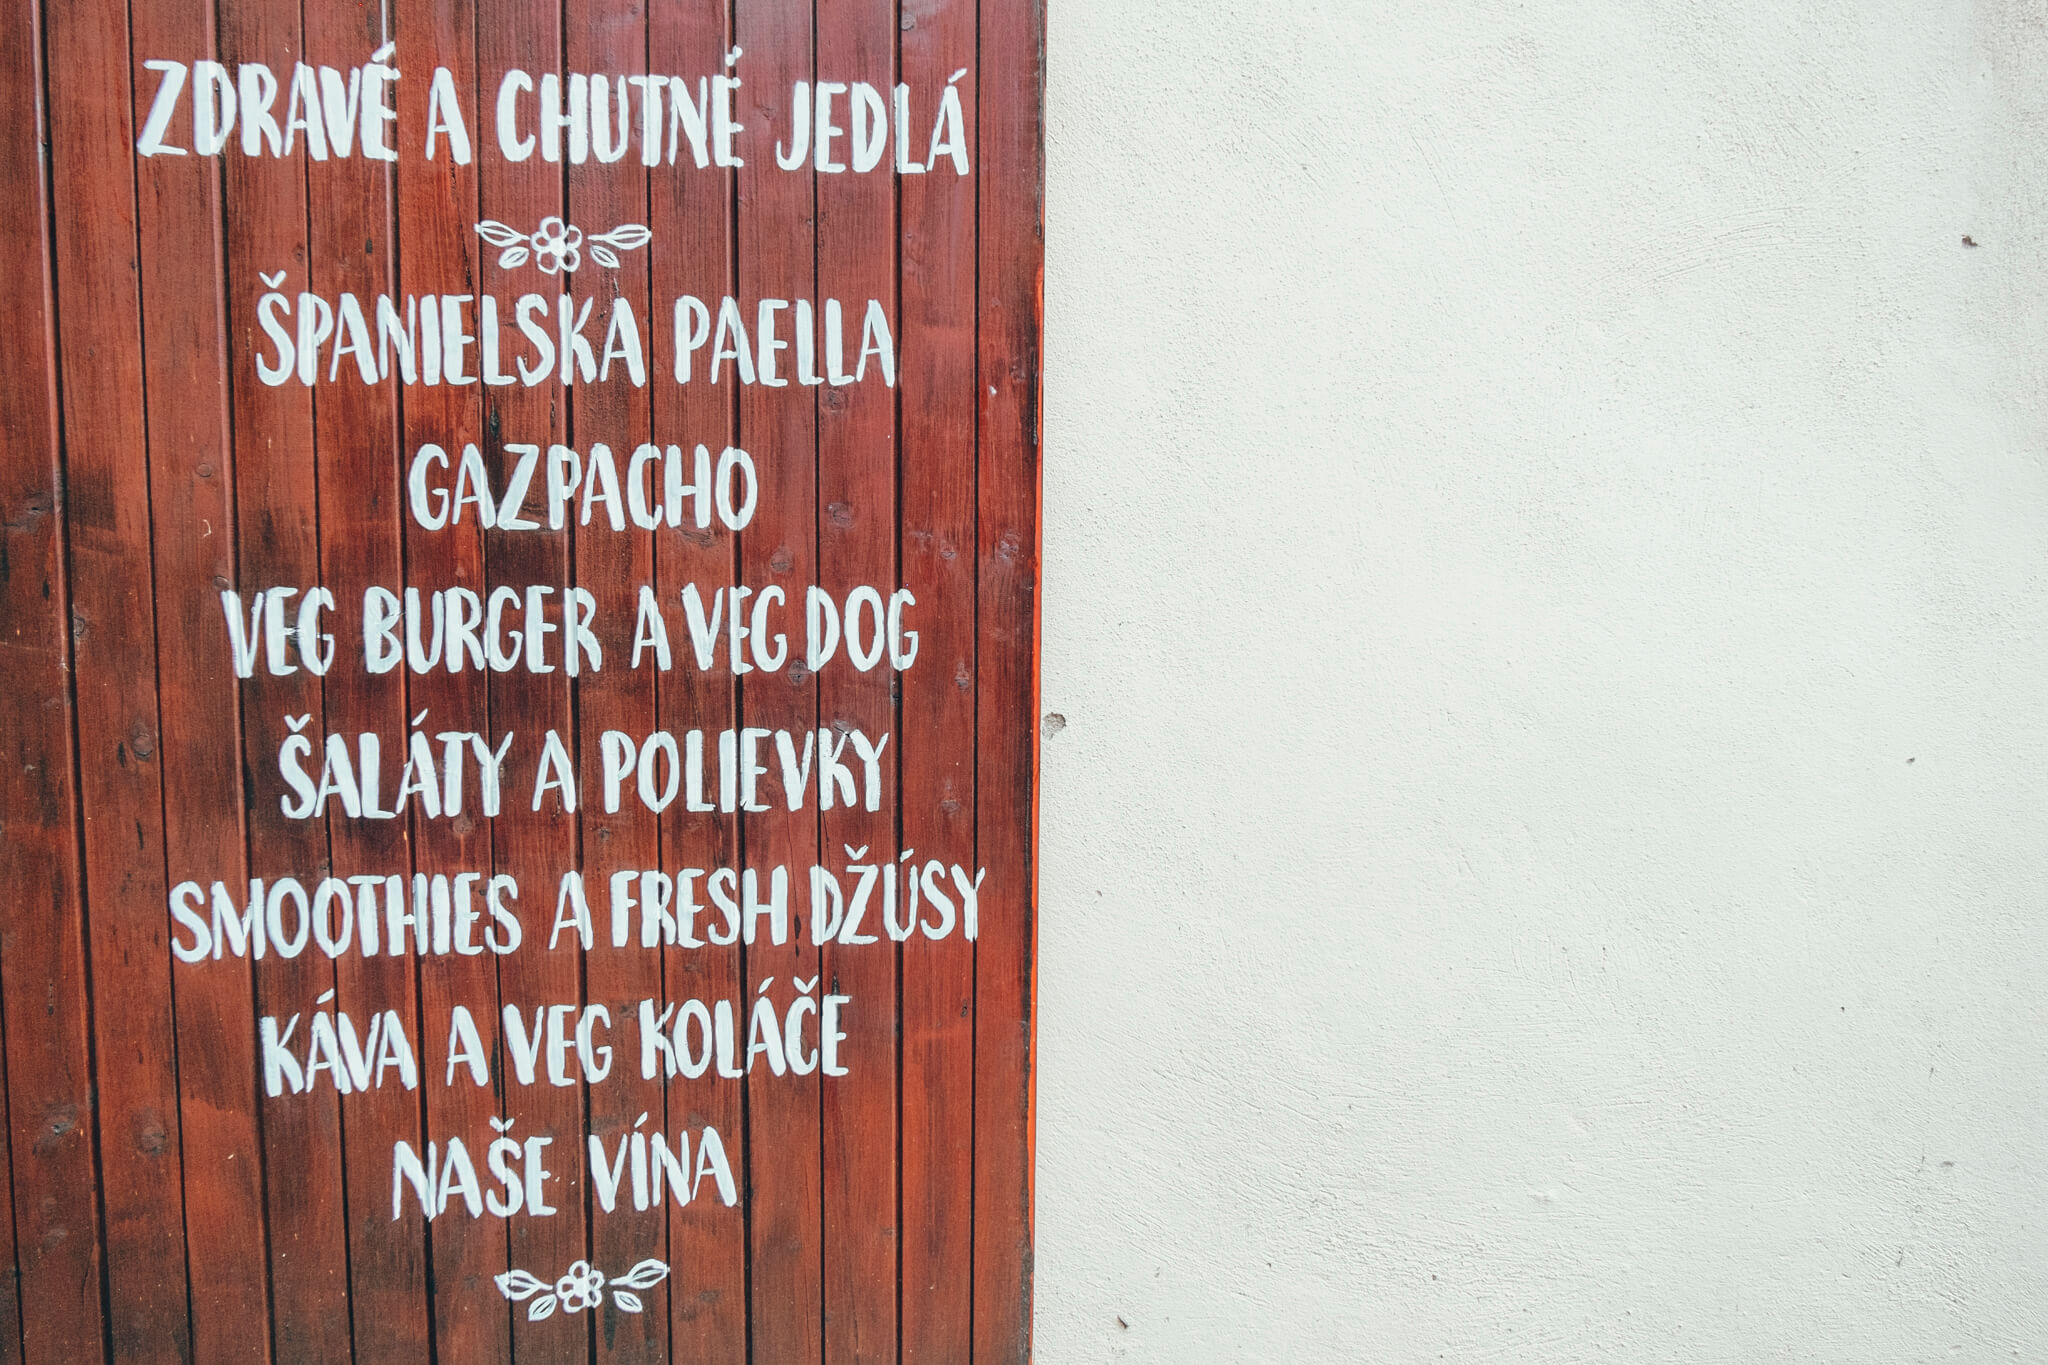 ZDRAVÉ A CHUTNÉ JEDLÁ
ŠPANIELSKA PAELLA
GAZPACHO
VEG BURGER A VEG DOG
ŠALÁTY A POLIEVKY
SMOOTHIES A FRESH DŽÚSY
KÁVA A VEG KOLÁČE
NAŠE VÍNA